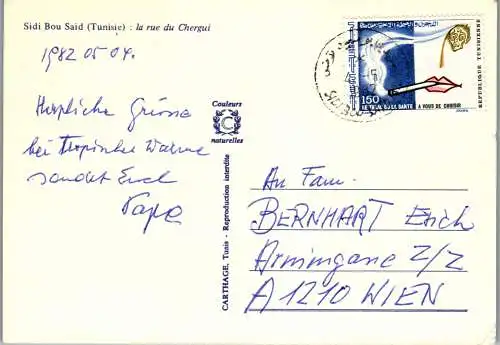 Sidi Bou Said (Tunisie) : la rue du Chergui
1982 05 04.
Herzliche Grüsse
bei tropischer Wärme
sendet Euch
Papa
Couleurs
C
naturelles
CARTHAGE, Tunis - Reproduction interdite
150
LE TABAC OU LA SANTE A VOUS DE CHOISIR
REPUBLIQUE TUNISIENNE
An Fam.
BERNHART Erich
Armingane 2/2
A 1210 WIEN